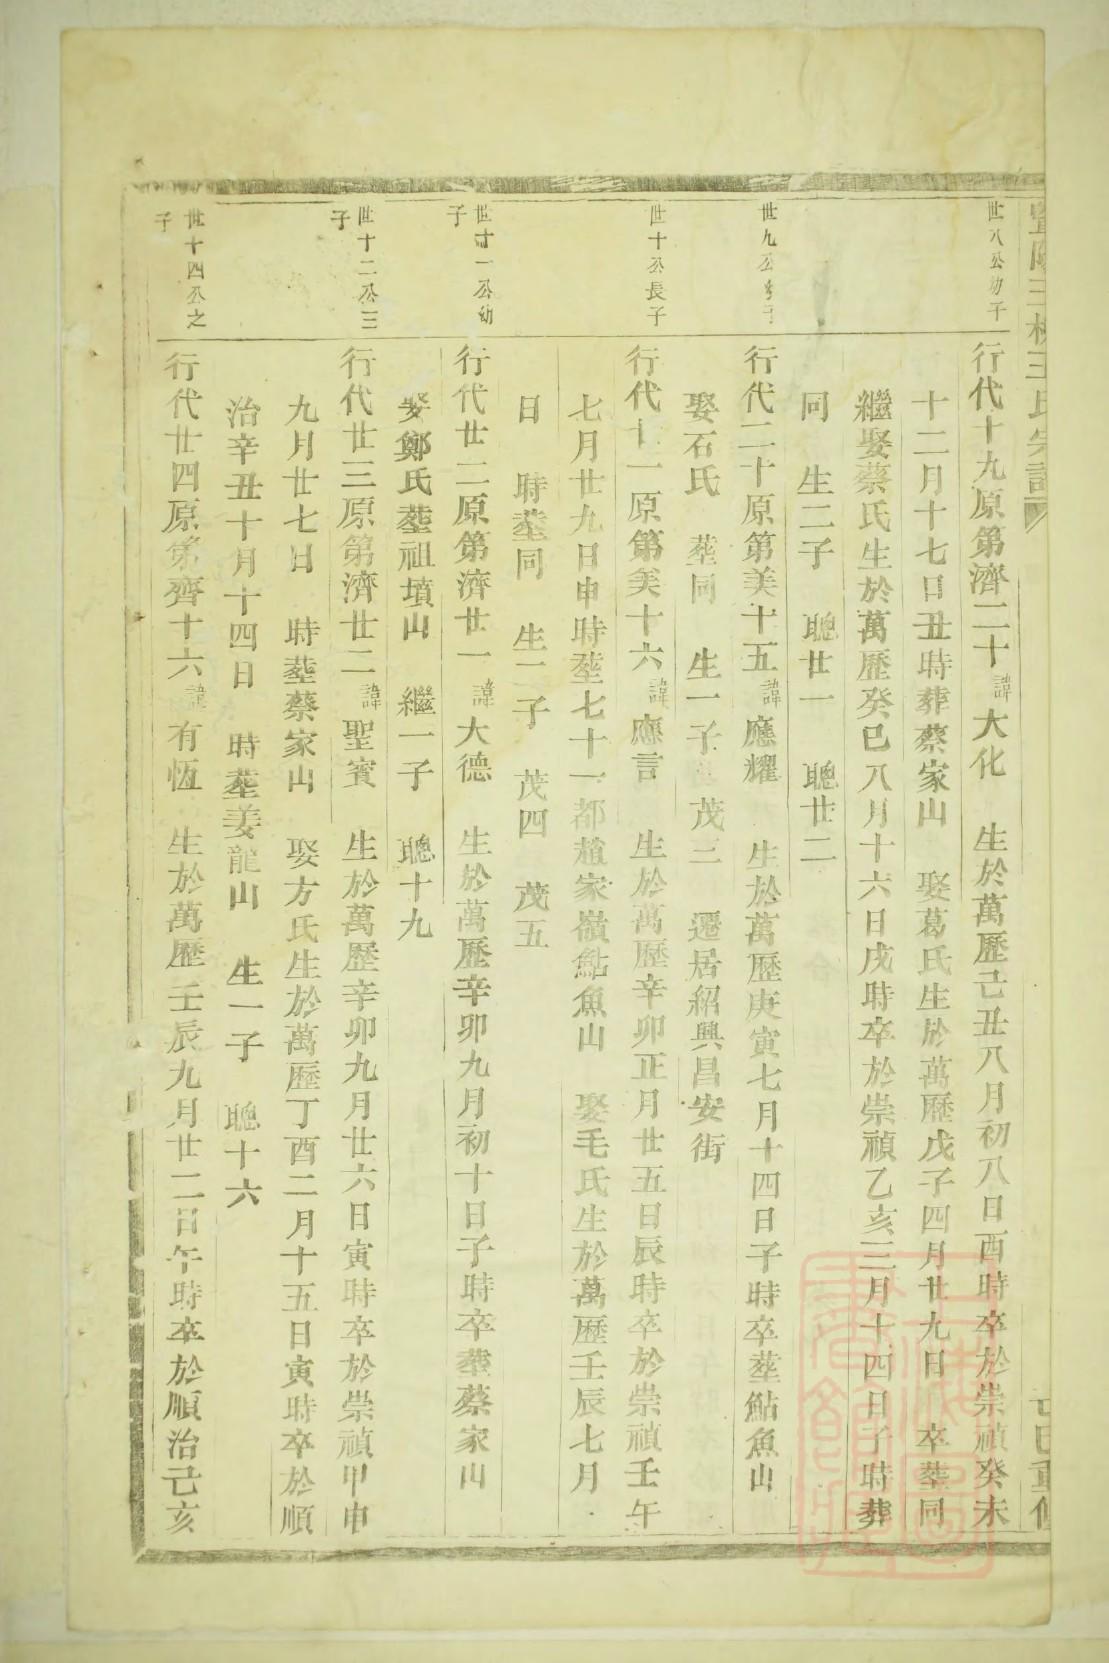 王氏宗譜
世八公幼子
行代十九原第濟二十諱大化 生於萬歷己丑八月初八日酉時卒於崇禎癸未
十二月十七日丑時葬蔡家山 娶葛氏生於萬歷戊子四月廿九日 卒塟同
繼娶蔡氏生於萬歷癸巳八月十六日戌時卒於崇禎乙亥三月十四日子時葬
同 生二子 聰廿一 聰廿二
世九公 子
行代二十原第美十五諱應耀 生於萬歷庚寅七月十四日子時卒塟鮎魚山
娶石氏 塟同 生一子 茂三 遷居紹興昌安街
世十公長子
行代廿一原第美十六諱應言 生於萬歷辛卯正月廿五日辰時卒於崇禎壬午
七月廿九日申時塟七十一都趙家嶺鮎魚山 娶毛氏生於萬歷壬辰七月
日 時塟同 生二子 茂四 茂五
世十一公幼
子
行代廿二原第濟廿一諱大德 生於萬歷辛卯九月初十日子時卒塟蔡家山
娶鄭氏塟祖墳山 繼一子 聰十九
世十二公三
子
行代廿三原第濟廿二諱聖賓 生於萬歷辛卯九月廿六日寅時卒於崇禎甲申
九月廿七日 時塟蔡家山 娶方氏生於萬歷丁酉二月十五日寅時卒於順
治辛丑十月十四日 時塟姜龍山 生一子 聰十六
世十四公之
子
行代廿四原第齊十六諱有恆 生於萬歷壬辰九月廿二日午時卒於順治己亥